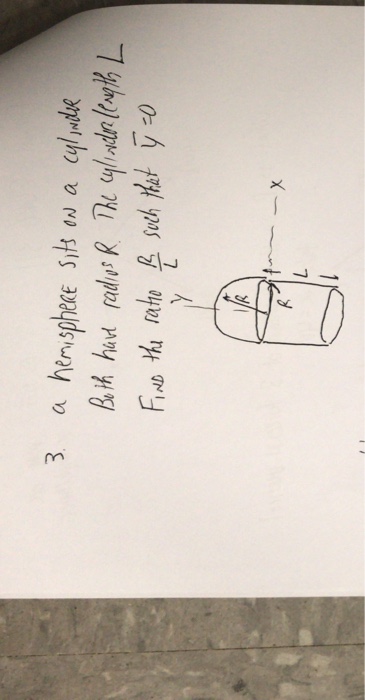 3. a hemisphere sits on a cylinder
Both have radius R. The cylinder length L
Find the ratio R/L such that ȳ=0
Y
R
R
L
X